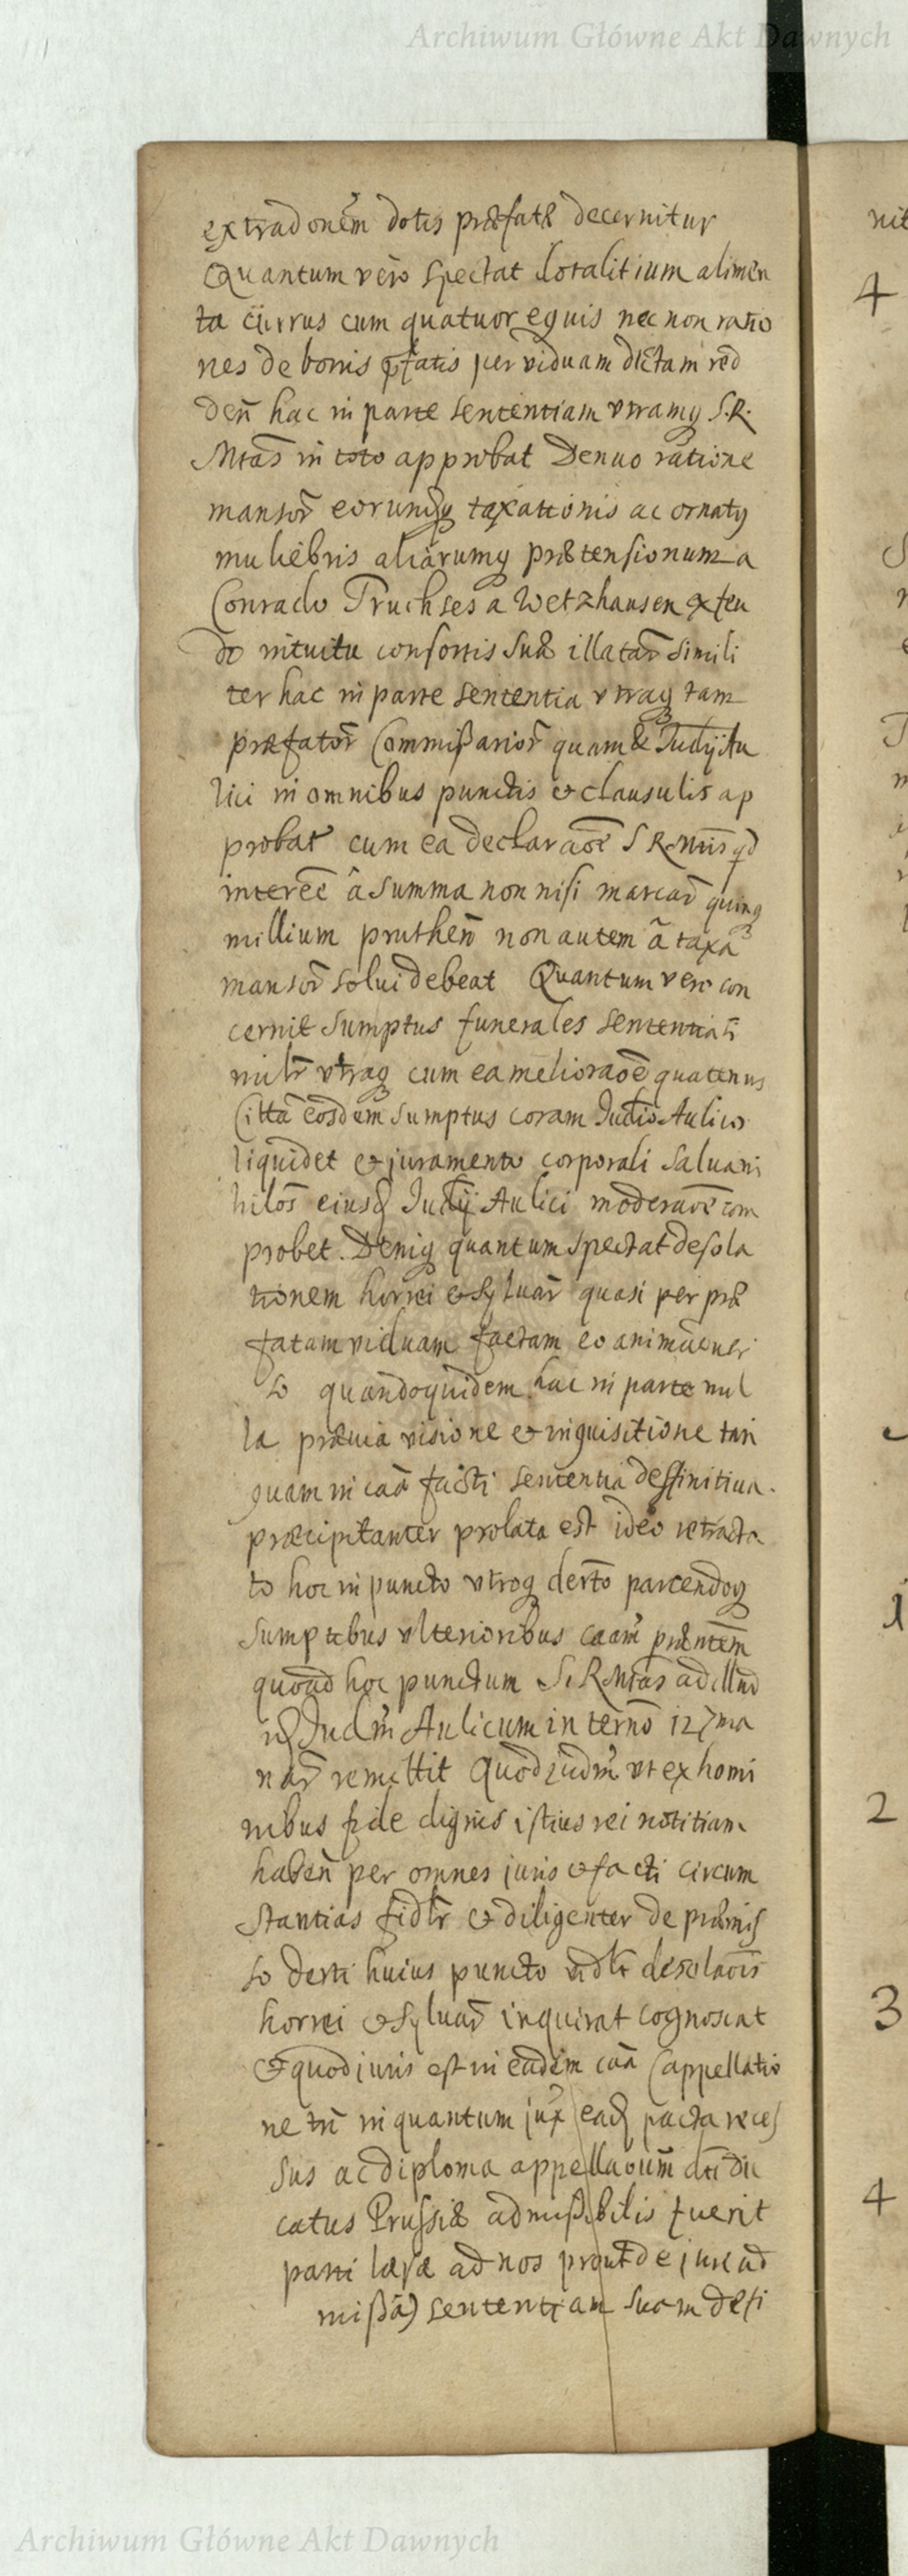 Archiwum Główne Akt Dawnych
extradonẽm dotis præfatæ decernitur
Quantum vero spectat dotalitium alimen
ta currus cum quatuor equis nec non ratio
nes de bonis pfatis per viduam dictam red
den̄ hac in parte sententiam vtramq S. R.
Mtas in toto approbat Denuo ratione
mansor̄ eorundq taxationis ac ornatq
muliebris aliarumq prætensionum a
Conrado Truchses a Wetzhausen ex feu
do intuitu consortis suæ illatar̄ simili
ter hac in parte sententia vtraq tam
præfator̄ Commißarior̄ quam & Judÿ Au
lici in omnibus punctis & clausulis ap
probat cum ea declaraõe S R Mtis qd
interee a summa non nisi marcar̄ quinq
millium pruthen̄ non autem a taxa
mansor̄ solui debeat Quantum vero con
cernit sumptus funerales
vtraq cum ea melioraõe quatenus
Citta eosdem sumptus coram Judio Aulico
liquidet & juramento corporali salua ni
hilos eiusd Judÿ Aulici moderaõe com
probet. Deniq quantum spectat desola
tionem horrei & syluar̄ quasi per præ
fatam viduam factam eo animaduer
so quandoquidem hac in parte nul
la præuia visione & inquisitione tan
quam in caa facti sententia deffinitiua
præcipitanter prolata est ideo retracta
to hoc in puncto vtroq derto parcendoq
sumptibus vlterioribus caam præntem
quoad hoc punctum S. R Mtas ad illud
Judm Aulicum in termo
nar̄ remittit Quod judm vt ex homi
nibus fide dignis istius rei notitiam
haben̄ per omnes juris & facti circum
stantias fidlr & diligenter de præmis
so derti huius puncto vidlt desolaois
horrei & syluar̄ inquirat cognoscat
& quod juris est in eadem caa (appellatio
ne tn̄ in quantum jux ead pacta reces
sus ac diploma appellaoum dti du
catus Prussiæ admißibilis fuerit
parti læsæ ad nos prout de jure ad
mißa) sententiam suam defi
nit
4
2
3
4
Archiwum Główne Akt Dawnych